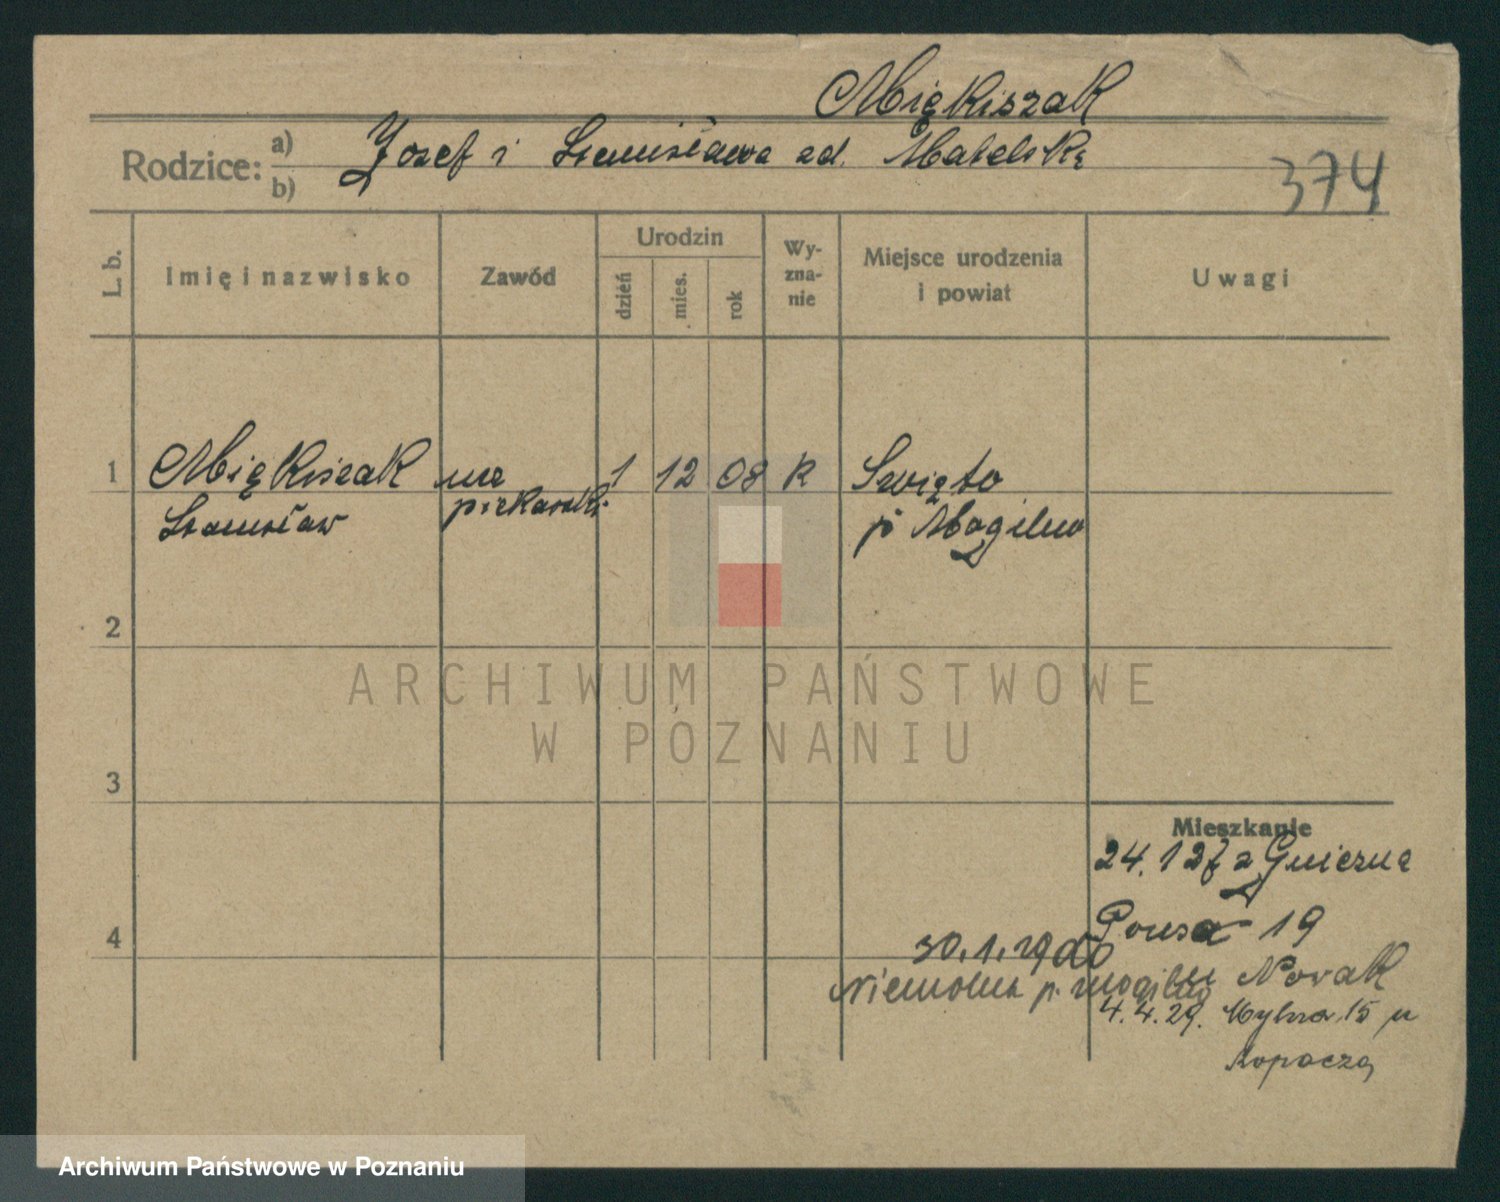 Miękiszak
Rodzice: a) Jozef i Stanisława zd. Matelska
b)
374
L. b. Imię i nazwisko Zawód Urodzin dzień mies. rok Wy-zna-nie Miejsce urodzenia i powiat Uwagi
1 Miękiszak ucz 1 12 08 R Święto
Stanisław piekarski p Mogilno
2
ARCHIWUM PAŃSTWOWE
W POZNANIU
3
Mieszkanie
24. 1 27 z Gniezna
19
4 30.1.29
Niemolna p. Mogilno u Nowak
4.4.29. 15 u
Kopacza
Archiwum Państwowe w Poznaniu